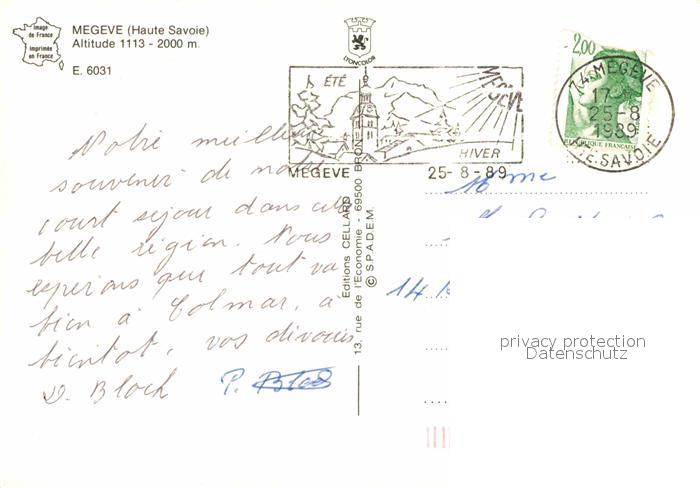 Image
de France
Imprimée
en France
MEGEVE (Haute Savoie)
Altitude 1113 - 2000 m.
E. 6031
LYONCOLOR
ÉTÉ
MEGÈVE
HIVER
MEGEVE 25-8-89
2,00
REPUBLIQUE FRANÇAISE
74 MEGEVE
17
25-8
1989
HTE-SAVOIE
Notre meilleur
souvenir de notre
court séjour dans cette
belle région. Nous
esperons que tout va
bien à Colmar, à
bientôt, vos dévoués
D. Bloch P. Bloch
Editions CELLARD
13, rue de l'Economie - 69500 BRON
© S.P.A.D.E.M.
Mme
14
privacy protection
Datenschutz